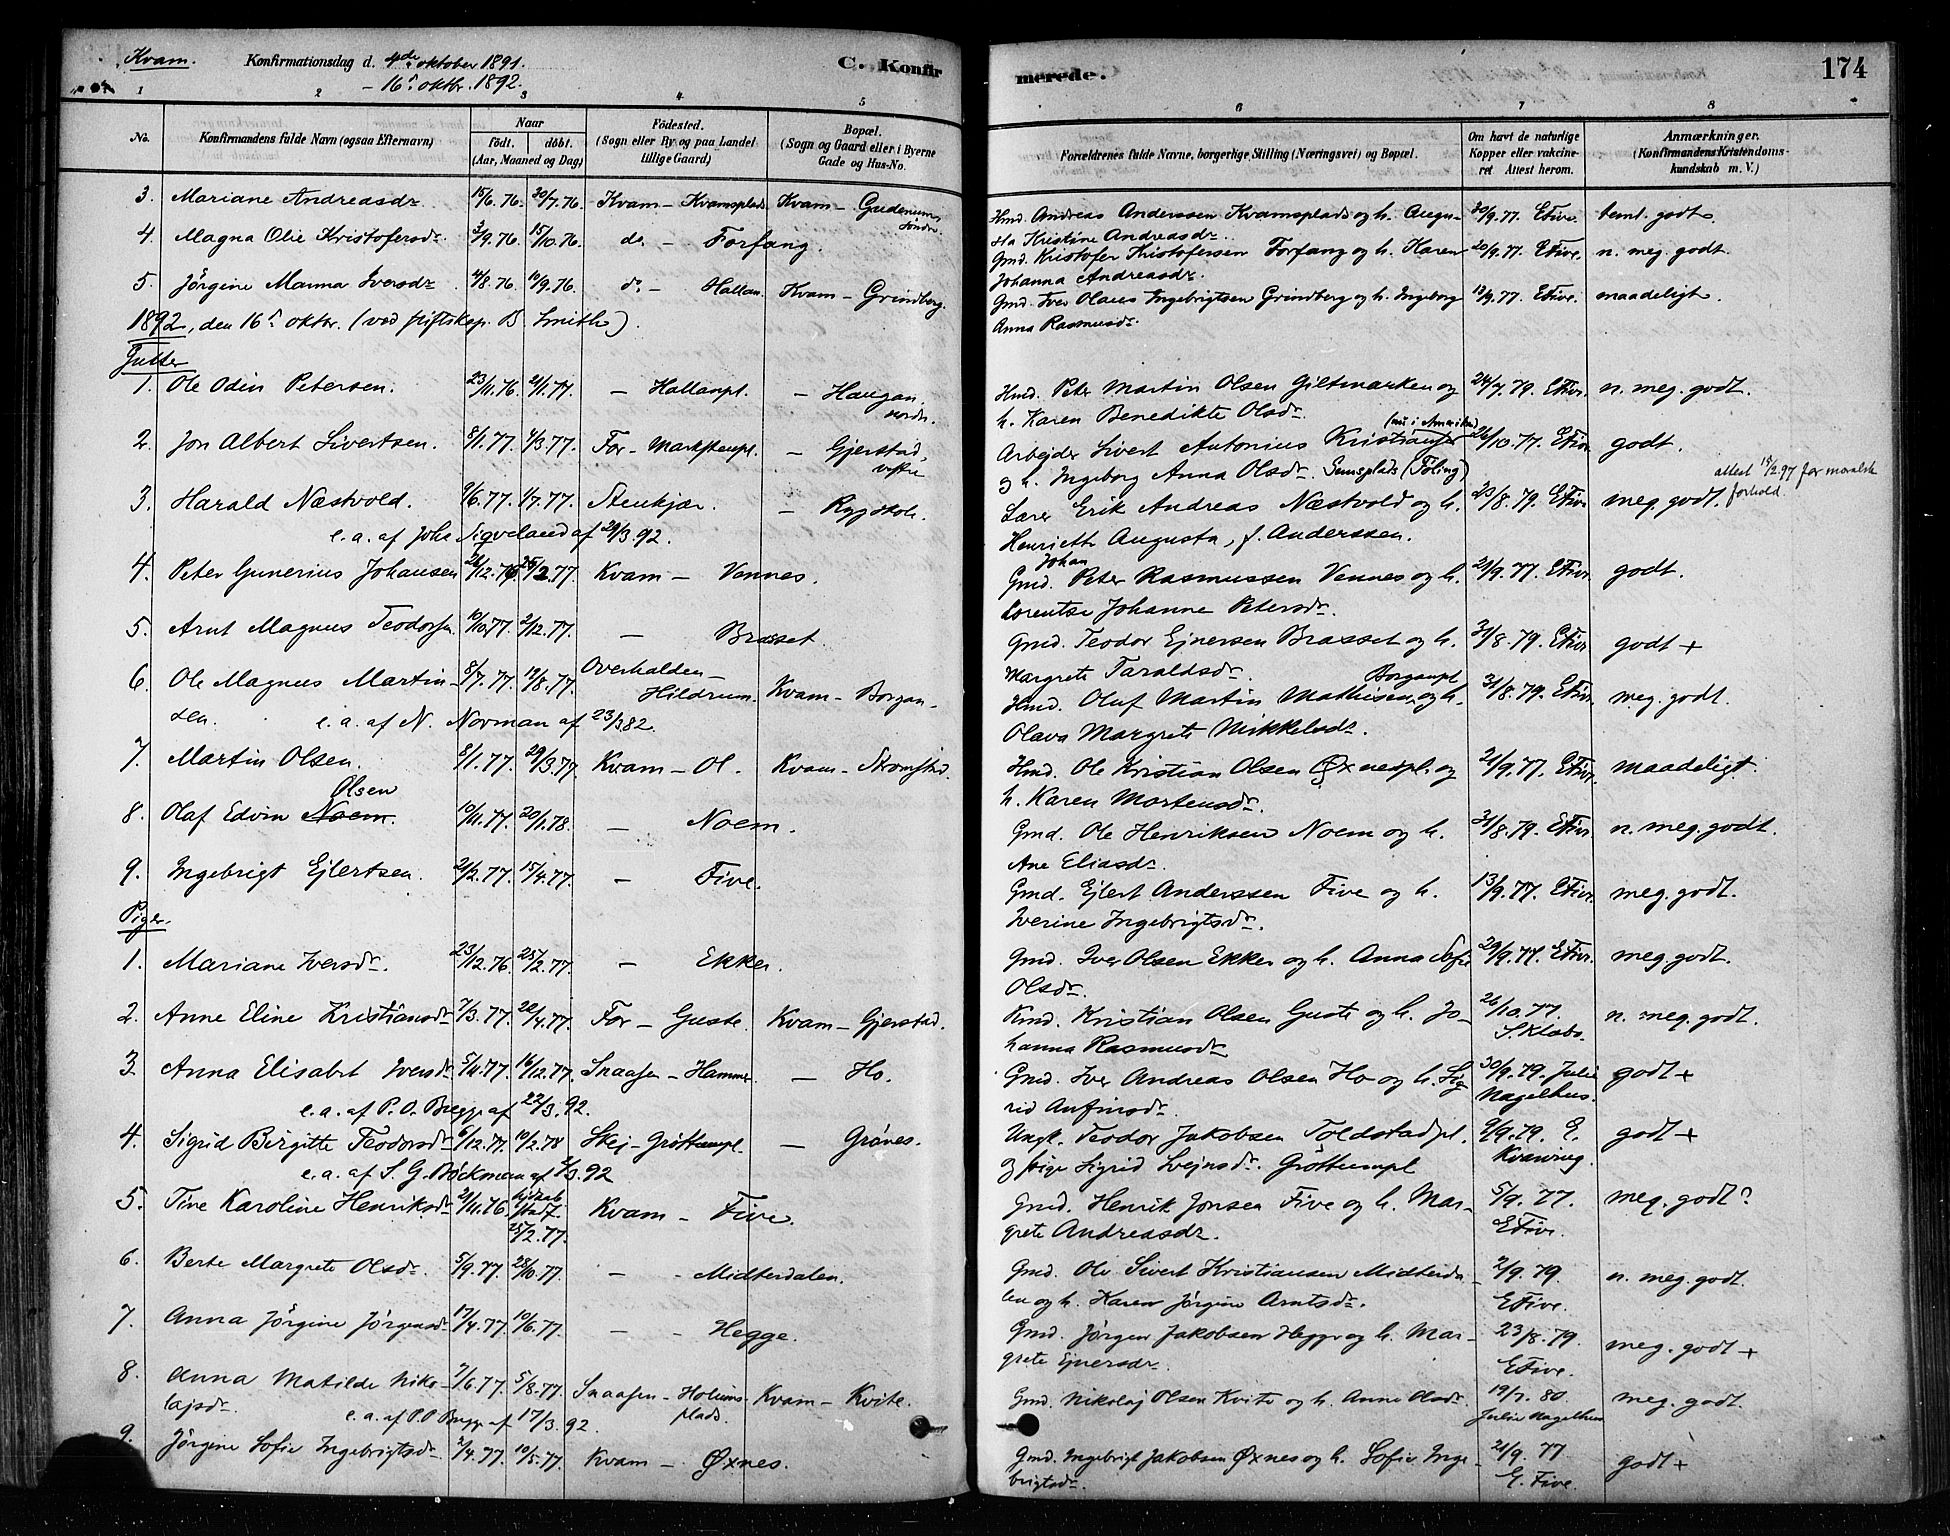 Kvam. Konfirmationsdag d. 4de oktober 1891. C. Konfir merede. 174
- 16. oktbr. 1892.
1 2 3 4 5 6 7 8
No. Konfirmandens fulde Navn (ogsaa Efternavn) Naar født. døbt. (Aar, Maaned og Dag) Fødested. (Sogn eller By og paa Landet tillige Gaard) Bopæl. (Sogn og Gaard eller i Byerne Gade og Hus-No. Forældrenes fulde Navne, borgerlige Stilling (Næringsvei) og Bopæl. Om havt de naturlige Kopper eller vakcineret Attest herom. Anmærkninger. (Konfirmandens Kristendomskundskab m. V.)
3. Mariane Andreasdr. 15/6.76. 30/7.76. Kvam - Kvamsplads Kvam - Hmd. Andreas Anderssen Kvamsplads og h. Augu- 20/9.77. EFive. teml. godt
sta Kristine Andreasdr.
4. Magna Olie Kristofersdr. 3/9.76. 15/10.76. do. - Forfang. Gmd. Kristofer Kristofersen Forfang og h. Karen 20/9.77. EFive. n. meg. godt.
Johanna Andreasdr.
5. Jörgine Manna Iversdr. 4/8.76. 10/9.76. do. - Hallan. Kvam - Grindberg. Gmd. Iver Olaus Ingebrigtsen Grindberg og h. Ingeborg 13/9.77. EFive. maadeligt.
Anna Rasmusdr.
1892, den 16. oktbr. (ved stiftskap. B. Smith).
Gutter
1. Ole Odin Petersen. 23/11.76. 21/1.77. - Hallanpl. - Haugan, nordr. Hmd. Peter Martin Olsen Giltmarken og 24/7.79. EFive. n. meg. godt.
h. Karen Benedikte Olsdr.
2. Jon Albert Sivertsen. 8/1.77. 4/3.77. For - Markstenpl. - Gjerstad, vestre Arbejder Sivert Antonius Kristiansen (nu i Amerika) 26/10.77. EFive. godt.
og h. Ingeborg Anna Olsdr.
3. Harald Næstvold. 9/6.77. 1/7.77. Stenkjær. - Lærer Erik Andreas Næstvold og h. 23/8.79. EFive. meg. godt. attest 18/2.97 for moralsk forhold.
e. a. af Johs Sigveland af 29/3.92. Henriette Augusta, f. Anderssen.
4. Peter Gunerius Johansen 26/12.76 25/2.77. Kvam - Vannes. Gmd. Johan Peter Rasmussen Vennes og h. 23/9.77. EFive. godt.
Lorentse Johanne Petersdr.
5. Arnt Magnus Teodorsen. 10/10.77. 2/12.77. - Brasset. Gmd. Teodor Ejnersen Brasset og h. 31/8.79. EFive. godt +
Margrete Taraldsdr.
6. Ole Magnus Martin- 8/7.77. 19/8.77. Overhalden - Hildrum. Kvam - Borgan. Hmd. Oluf Martin Mathisen Borganpl. og h. 31/8.79. EFive. meg. godt.
sen. e. a. af N. Norman af 23/382. Olava Margrete Mikkelsdr.
7. Martin Olsen. 8/1.77. 29/3.77. Kvam - Ol. Kvam - Strømstad. Hmd. Ole Kristian Olsen Øxnespl. og 21/9.77. EFive. maadeligt.
h. Karen Mortensdr.
8. Olaf Edvin Noem. Olsen 10/11.77. 20/1.78. - Noem. Gmd. Ole Henriksen Noem og h. 31/8.79. EFive. n. meg. godt.
Ane Eliasdr.
9. Ingebrigt Ejlertsen. 21/2.77. 15/4.77. - Five. Gmd. Ejlert Anderssen Five og h. 13/9.77. EFive. meg. godt.
Iverine Ingebrigtsdr.
Piger.
1. Mariane Iversdr. 23/12.76. 25/2.77. - Ekker. Gmd. Iver Olsen Ekker og h. Anna Sofie 29/9.77. EFive. meg. godt.
Olsdr.
2. Anne Eline Kristiansdr. 7/3.77. 22/4.77. For - Guste. Kvam - Gjerstad. Kmd. Kristian Olsen Guste og h. Jo- 26/10.77. S. Klæbo. n. meg. godt.
hanna Rasmusdr.
3. Anna Elisabet Iversdr. 5/11.77. 16/12.77. Snaasen - Hammer. - Ho. Gmd. Iver Andreas Olsen Ho og h. Sig- 30/9.79. Julie Nagelhus. godt +
e. a. af P. O. Bugge af 22/3.92. rid Anfinsdr.
4. Sigrid Birgitte Teodorsdr. 6/12.77. 10/2.78 Stej - Gröttempl. - Grønes. Ungk. Teodor Jakobsen Toldstadpl. 9/9.79. E. Kvarving. godt +
e. a. af S. G. Böckman af 2/3.92 og pige Sigrid Svejnsdr. Gröttempl
5. Tine Karoline Henriksdr. 9/11.76. hjdåb stadf. 25/2.77. Kvam - Five. Gmd. Henrik Jonsen Five og h. Mar- 5/9.77. EFive. meg. godt?
grete Andreasdr.
6. Berte Margrete Olsdr. 5/9.77. 28/10.77. - - Midterdalen. Gmd. Ole Sivert Kristiansen Midterda- 2/9.79. EFive. n. meg. godt.
len og h. Karen Jörgine Arntsdr.
7. Anna Jörgine Jörgensdr. 17/4.77. 10/6.77. - - Hegge. Gmd. Jörgen Jakobsen Hegge og h. Mar- 23/8.79. EFive. meg. godt +
grete Ejnersdr.
8. Anna Matilde Niko- 7/6.77. 5/8.77. Snaasen - Holiensplads. Kvam - Kvite. Gmd. Nikolaj Olsen Kvite og h. Anne Olsdr. 19/7.80. Julie Nagelhus meg. godt.
lajsdr. e. a. af P. O Bugge af 17/3.92.
9. Jörgine Sofie Ingebrigtsdr. 2/4.77. 10/5.77. Kvam - Øxnes. Gmd. Ingebrigt Jakobsen Øxnes og h. Sofie Inge- 21/9.77 E. Five. godt +
brigtsdr.